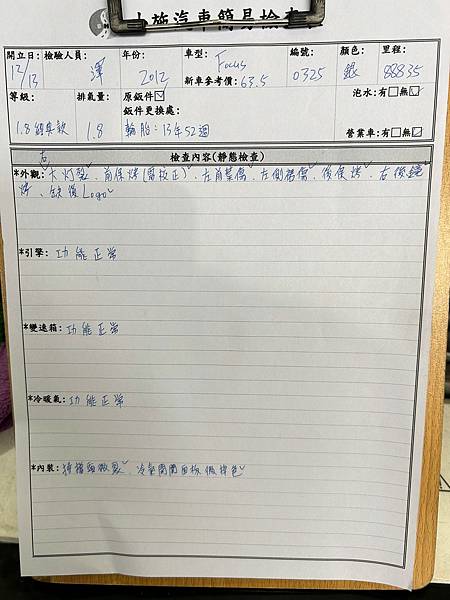 小施汽車簡易檢查
開立日: 檢驗人員: 年份: 車型: Focus 編號: 顏色: 里程:
12/13 澤 2012 新車參考價: 63.5 0325 銀 88835
等級: 排氣量: 原鈑件☑ 泡水:有□無☑
鈑件更換處:
1.8 經典款 1.8 輪胎:13年52週 營業車:有□無☑
檢查內容(靜態檢查)
右
*外觀: 大灯裂、前保烤(需校正)、左前葉傷、左側裙傷、後保烤、右後
烤、缺後Logo
*引擎: 功能正常
*變速箱: 功能正常
*冷暖氣: 功能正常
*內裝: 排檔頭微裂、冷氣開關面板微掉色